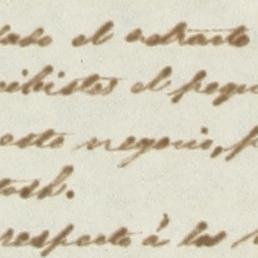 el estracto
cibistes el pequ
este negocio, p
respecto á las